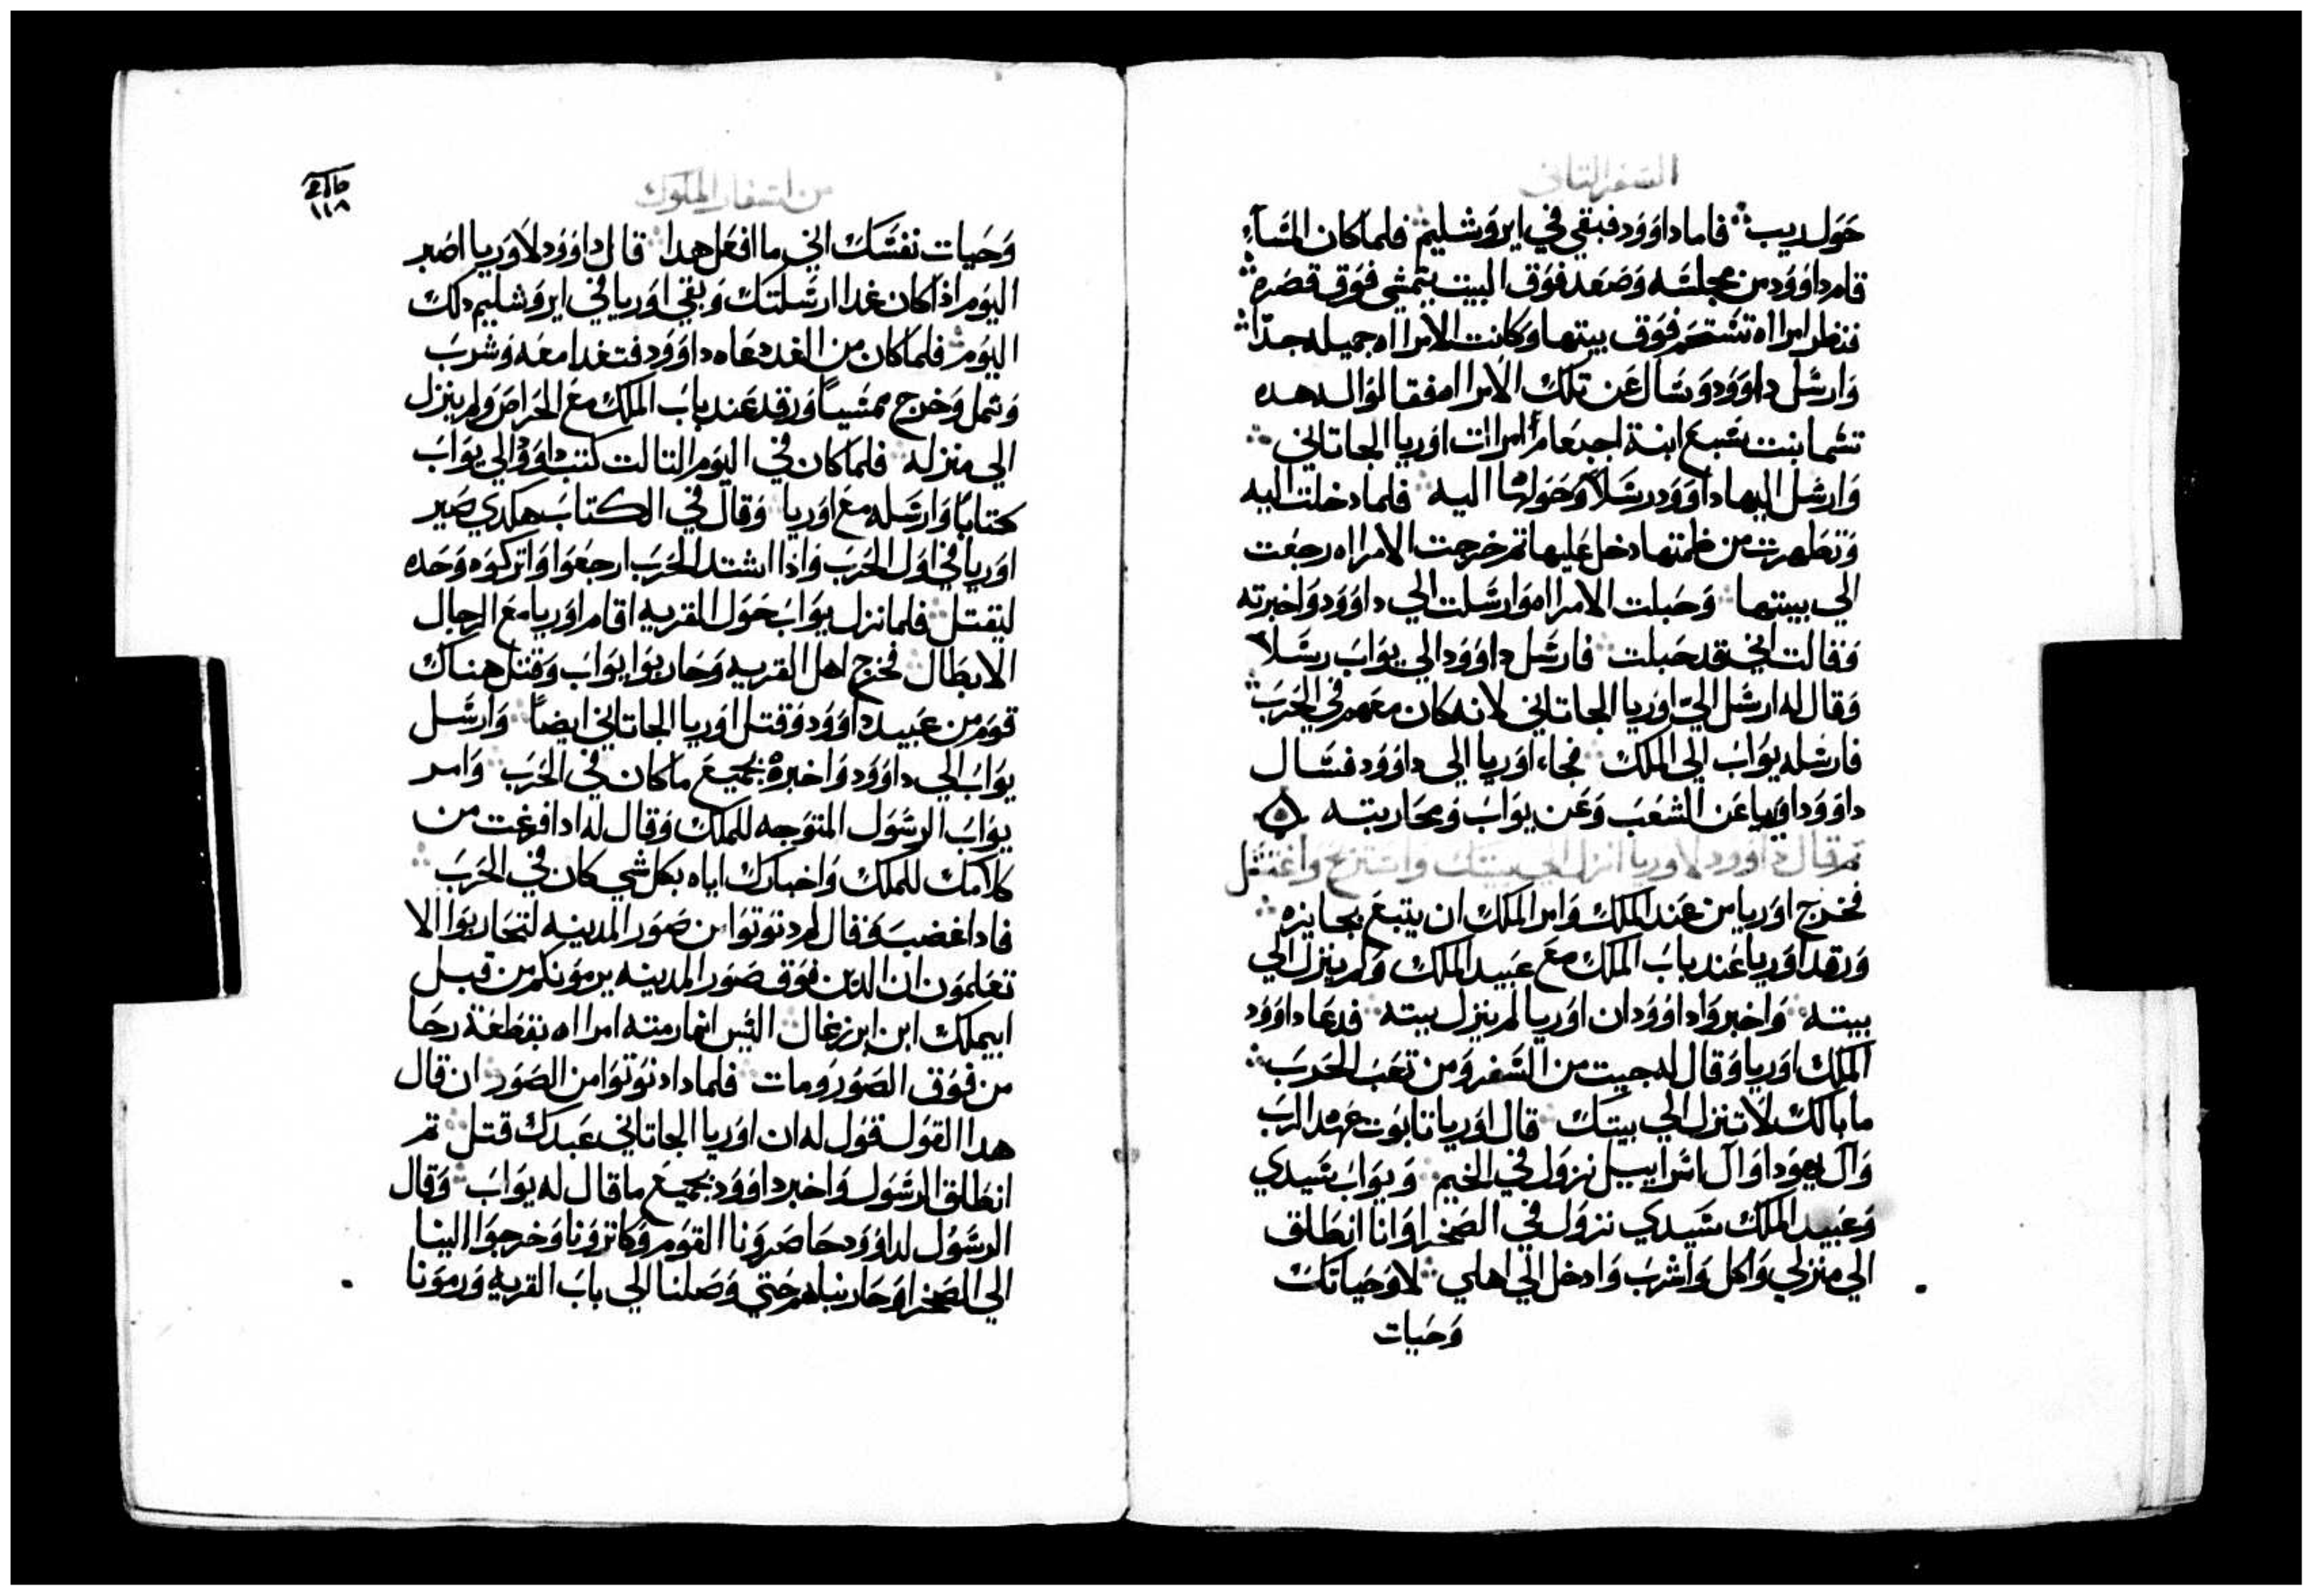 السفر التاني
حول ديب فاما داوود فبقي في ايروشليم فلما كان المسآء
قام داوود من مجلسه وصعد فوق البيت يتمشي فوق قصره
فنظر امراه تستحم فوق بيتها وكانت الامراه جميله جداً
وارسل داوود وسال عن تلك الامراه فقالوا له هده
تشما بنت شبع ابنة امرات اوريا الجاتاني
وارسل اليها داوود رسلاً وحولها اليه فلما دخلت اليه
وتطهرت من طمتها دخل عليها تم خرجت الامراه رجعت
الي بيتها وحبلت الامراه وارسلت الي داوود واخبرته
وقالت اني قد حبلت فارسل داوود الي يواب رسلاً
وقال له ارسل الي اوريا الجاتاني لانه كان معهم في الحرب
فارسله يواب الي الملك فجاء اوريا الي داوود فسال
داوود اوريا عن الشعب وعن يواب ومحاربته
تم قال داوود لاوريا انزل الي بيتك واستريح واغتسل
فخرج اوريا من عند الملك وامر الملك ان يتبع بجايزه
ورقد اوريا عند باب الملك مع عبيد الملك ولم ينزل الي
بيته واخبروا داوود ان اوريا لم ينزل بيته فدعا داوود
الملك اوريا وقال له جيت من السفر ومن تعب الحرب
ما بالك لا تنزل الي بيتك قال اوريا تابوت عهد الرب
وآل يهودا وآل اسراييل نزول في الخيم ويواب سيدي
وعبيد الملك سيدي نزول في الصحرا وانا انطلق
الي منزلي واكل واشرب وادخل الي اهلي لا وحياتك
وحيات
من اسفار الملوك
١١٨
وحيات نفسك اني ما افعل هدا قال داوود لاوريا اصبر
اليوم اذا كان غدا ارسلتك وبقي اوريا في ايروشليم دلك
اليوم فلما كان من الغد دعاه داوود فتغدا معه وشرب
وتمل وخرج ممسياً ورقد عند باب الملك مع الحراص ولم ينزل
الي منزله فلما كان في اليوم التالت كتب داوود الي يواب
كتاباً وارسله مع اوريا وقال في الكتاب هكدي صير
اوريا في اول الحرب واذا اشتد الحرب ارجعوا واتركوه وحده
ليقتل فلما نزل يواب حول القريه اقام اوريا مع الرجال
الابطال فخرج اهل القريه وحاربوا يواب وقتل هناك
قوم من عبيد داوود وقتل اوريا الجاتاني ايضاً وارسل
يواب الي داوود واخبره بجميع ما كان في الحرب وامر
يواب الرسول المتوجه للملك وقال له ادا فرغت من
كلامك للملك واخبارك اياه بكل شي كان في الحرب
فادا غضب وقال لم دنوتوا من صور المدينه لتحاربوا الا
تعلمون ان الدين فوق صور المدينه يرمونكم من قبل
ابيملك ابن ابرزغال اليس انما رمته امراه بقطعة رحا
من فوق الصور ومات فلمادا دنوتوا من الصور ان قال
هدا القول قول له ان اوريا الجاتاني عبدك قتل تم
انطلق الرسول واخبر داوود بجميع ما قال له يواب وقال
الرسول لداوود حاصرونا القوم وكاترونا وخرجوا الينا
الي الصحرا وحاربناهم حتي وصلنا الي باب القريه ورمونا